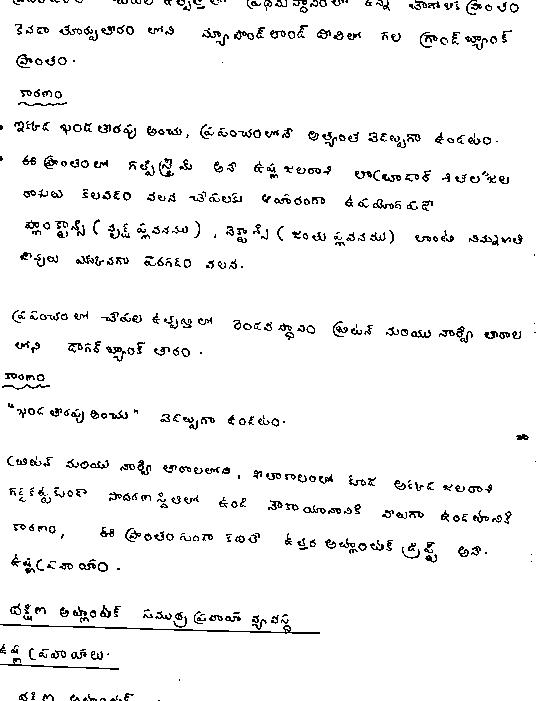 ప్రపంచంలో చేపల ఉత్పత్తిలో ప్రథమ స్థానంలో ఉన్న ప్రాంతం
కెనడా తూర్పుతీరం లోని న్యూ పౌండ్ లాండ్ దీవిలో గల గ్రాండ్ బ్యాంక్
ప్రాంతం.
కారణం
ఇక్కడ ఖండ తీరపు అంచు, ప్రపంచంలోనే అత్యంత వెడల్పుగా ఉండటం.
ఈ ప్రాంతంలో గల్ఫ్ స్ట్రీమ్ అనే ఉష్ణ జలరాశి లాబ్రడార్ శీతల జల
రాశులు కలవడం వలన చేపలకు ఆహారంగా ఉపయోగపడే
ప్లాంక్టాన్స్ ( వృక్ష ప్లవకము ) , నెక్టాన్స్ ( జంతు ప్లవకము ) లాంటి నిమ్నజాతి
జీవులు ఎక్కువగా పెరగడం వలన.
ప్రపంచం లో చేపల ఉత్పత్తి లో రెండవ స్థానం బ్రిటన్ మరియు నార్వే తీరాల
లోని డాగర్ బ్యాంక్ తీరం .
కారణం
"ఖండ తీరపు అంచు" వెడల్పుగా ఉండటం.
బ్రిటన్ మరియు నార్వే తీరాలలోని , శీతాకాలంలో కూడ అక్కడ జలరాశి
గడ్డకట్టకుండా సాధారణ స్థితిలో ఉండి నౌకాయానానికి వీలుగా ఉండటానికి
కారణం, ఈ ప్రాంతం గుండా కదిలే ఉత్తర అట్లాంటిక్ డ్రిఫ్ట్ అనే
ఉష్ణ ప్రవాహం .
దక్షిణ అట్లాంటిక్ సముద్ర ప్రవాహ వ్యవస్థ
ఉష్ణ ప్రవాహాలు.
దక్షిణ అట్లాంటిక్